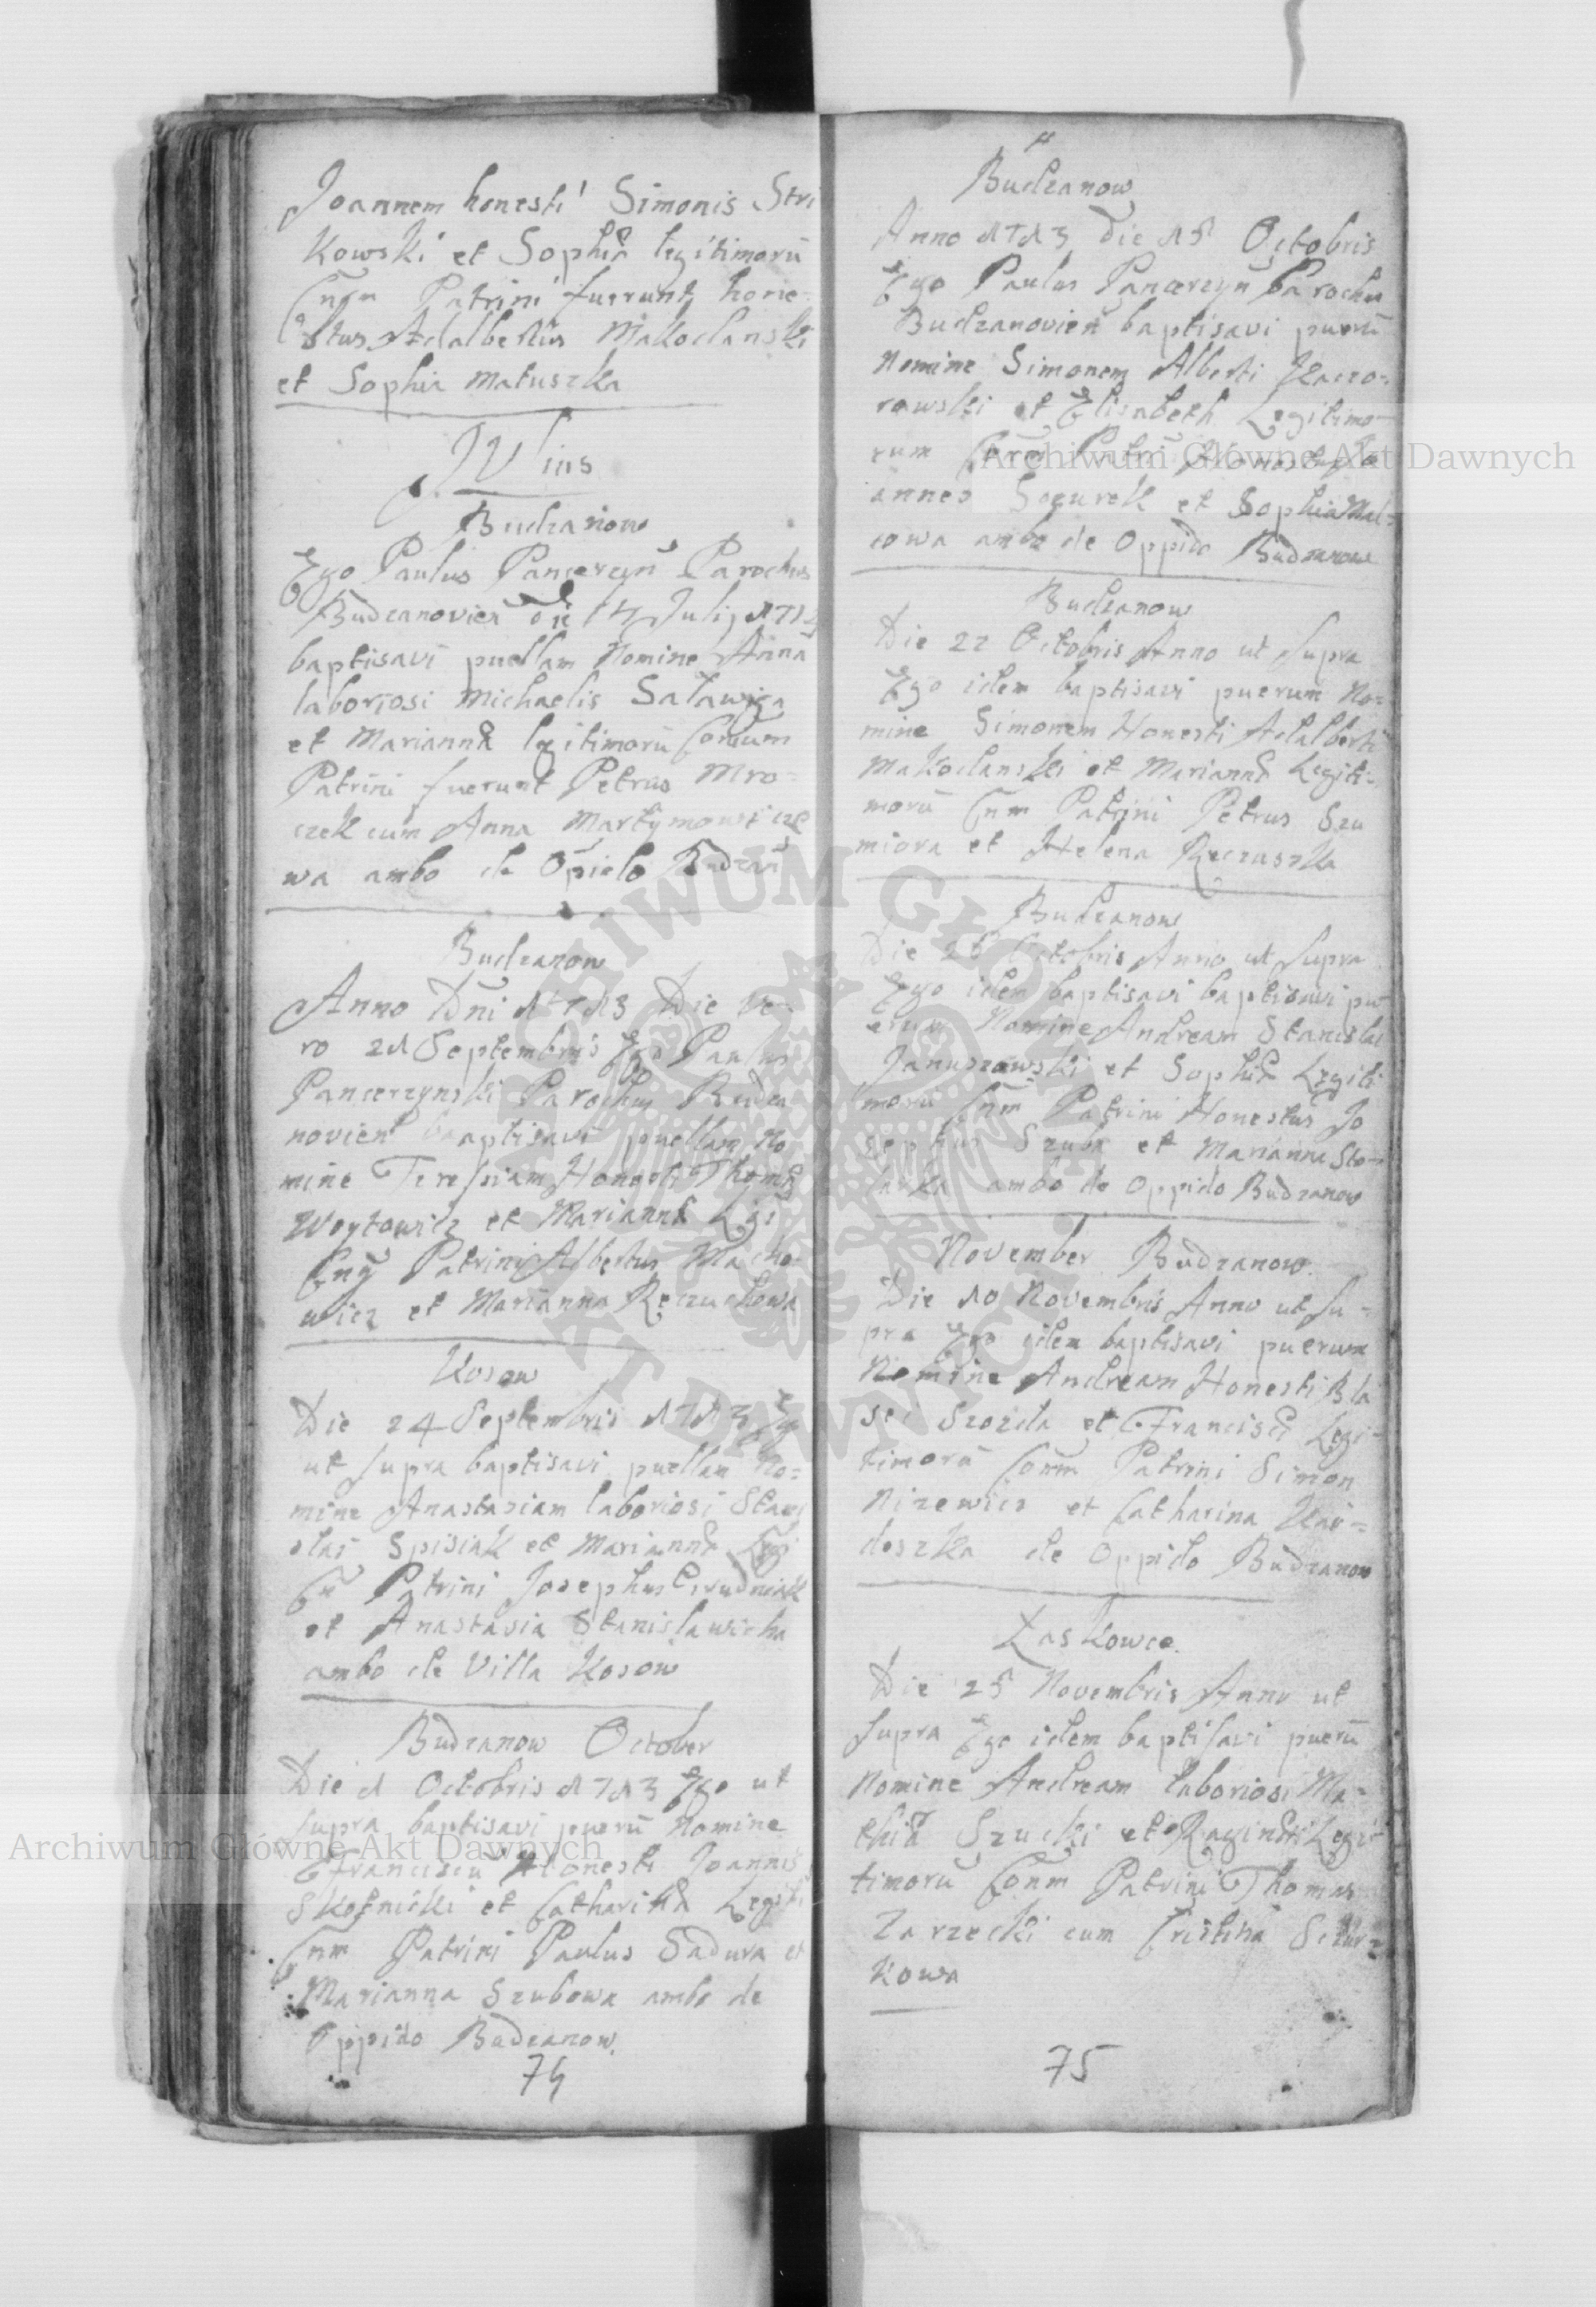 Joannem honesti Simonis Stri
Kowski et Sophiæ legitimorū
Cnm Patrini fuerunt hone-
stus Adalbertus Makodanski
et Sophia Matuszka
IVlius
Budzanow
Ego Paulus Pancerzyn Parochus
Budzanovien die 17 Julij 1713
baptisavi puellam Nomine Anna
laboriosi Michaelis Salawiga
et Mariannæ legitimorū Coniūm
Patrini fuerunt Petrus Mro-
czek cum Anna Martynowicze
wa ambo de Opido Budzan
Budzanow
Anno Dni 1713 Die Ve-
ro 21 Septembris Ego Paulus
Pancerzynski Parochus Budza
novien baptisavi puellam No
mine Teressiam Honesti Thomæ
Woytowicz et Mariannæ
Patrini Albertus Macho-
wicz et Marianna Reczuchowa
Kosow
Die 24 Septembris 1713 Ego
ut supra baptisavi puellam No-
mine Anastasiam laboriosi Stani
slai Spisiak et Mariannæ Legi
Patrini Josephus
et Anastasia Stanislawicha
ambo de Villa Kosow
Budzanow October
Die 1 Octobris 1713 Ego ut
supra baptisavi puerū Nomine
Franciscū Honesti Joannis
Skotnicki et Catharinæ Legiti
Cnm Patrini Paulus Sadura et
Marianna Szubowa ambo de
Oppido Budzanow.
74
Budzanow
Anno 1713 Die 15 Octobris
Ego Paulus Pancerzyn Parochus
Budzanovien baptisavi puerū
Nomine Simonem Alberti
rowski et Elisabeth Legitimo-
rum Patri Honest Jo
annes Sogurek et Sophia Mal-
cowa ambo de Oppido Budzanow
Budzanow
Die 22 Octobris Anno ut Supra
Ego idem baptisavi puerum No-
mine Simonem Honesti Adalberti
Makodanski et Mariannæ Legiti-
morū Cnm Patrini Petrus Szu
miora et Helena Reczuszka
Budzanow
Die 28 Octobris Anno ut Supra
Ego idem baptisavi baptisavi pu-
erum Nomine Andream Stanislai
Januszewski et Sophiæ Legiti
morū Cnm Patrini Honestus Jo
sephus Szuba et Marianna Sto-
ambo de Oppido Budzanow
November Budzanow.
Die 10 Novembris Anno ut Su-
pra Ego idem baptisavi puerum
Nomine Andream Honesti Bla
sei Szozda et Franciscæ Legi-
timorū Conm Patrini Simon
Nizewicz et Catharina Kav-
doszka de Oppido Budzanow
Łaskowce.
Die 25 Novembris Anno ut
Supra Ego idem baptisavi puerū
Nomine Andream laboriosi Ma-
thiæ Szucki et Reginæ Legi-
timorū Conm Patrini Thomas
Zarzecki cum Cristina
kowa
75
Archiwum Główne Akt Dawnych
Archiwum Główne Akt Dawnych
ARCHIWUM GŁÓWNE AKT DAWNYCH